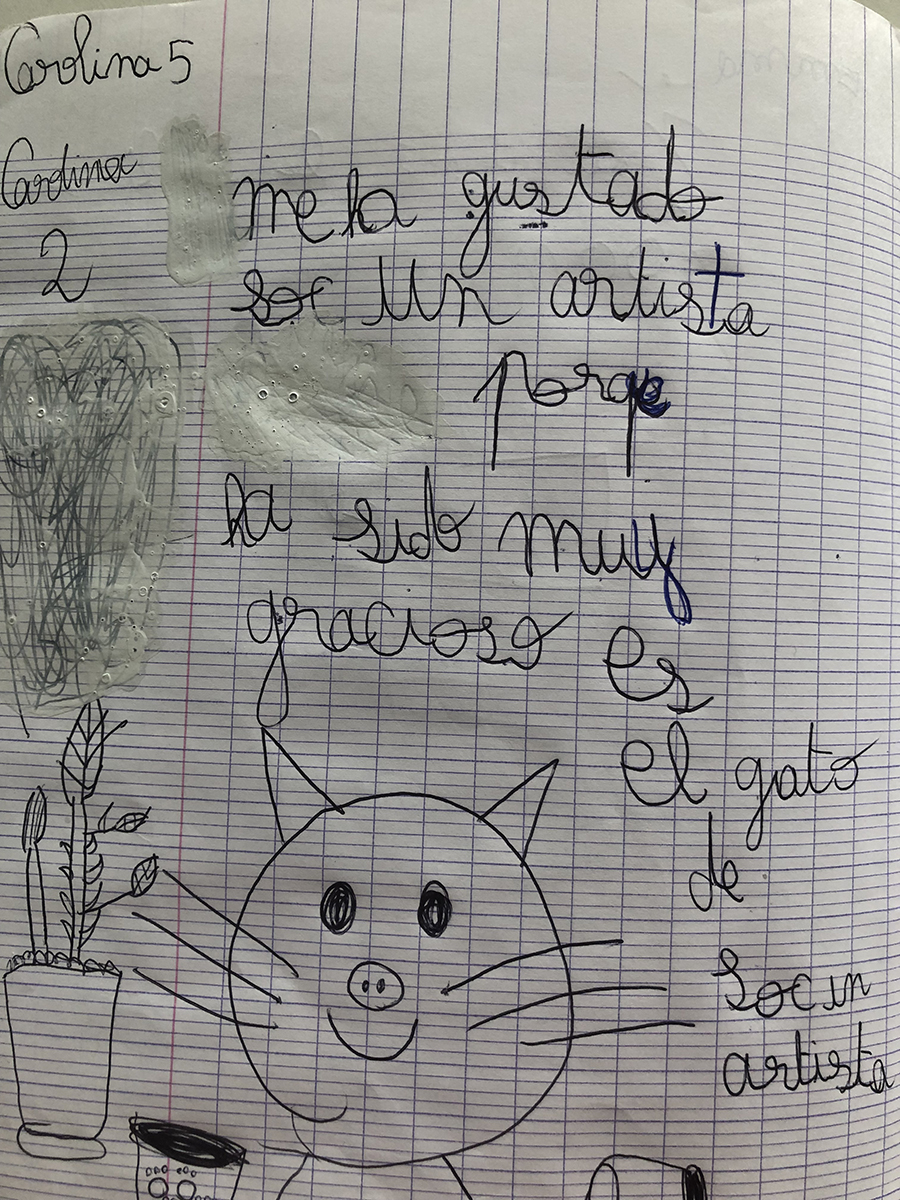 Carolina 5
Carolina
2
me ha gustado
soc un artista
porqe
ha sido muy
gracioso
es
el gato
de
Soc un
artista